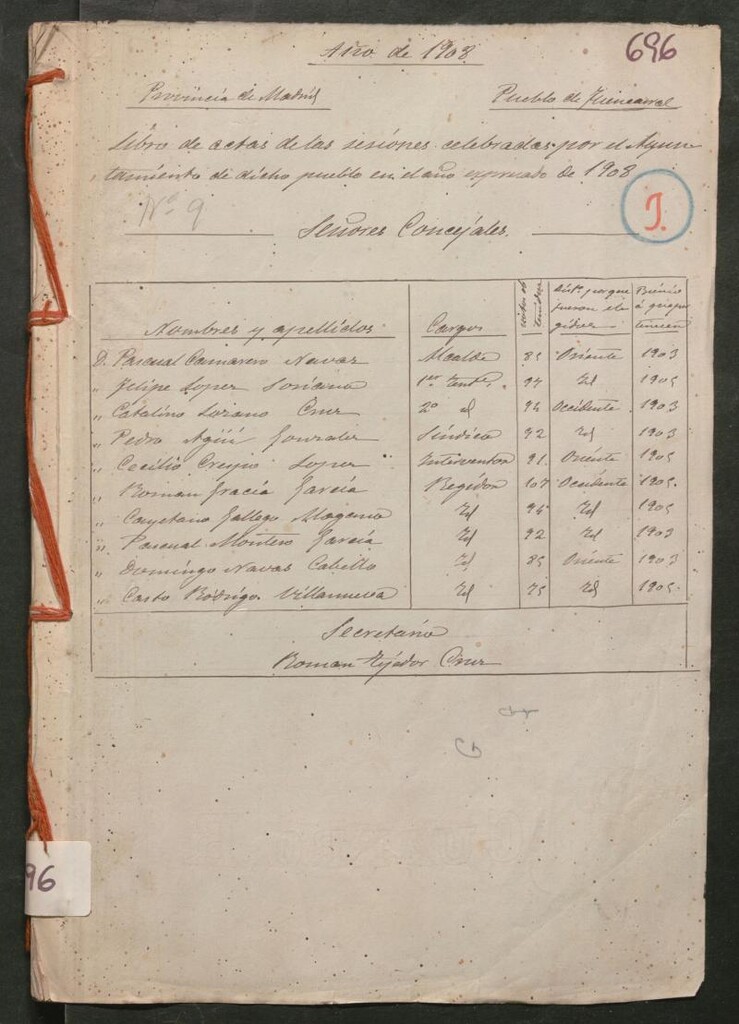 Año de 1908
696
Provincia de Madrid
Pueblo de Fuencarral
Libro de actas de las sesiones celebradas por el Ayun
tamiento de dicho pueblo en el año expresado de 1908
Nº 9
J.
Señores Concejales.
Nombres y apellidos Cargos votos ob tenidos Distº porque fueron ele gidos Bienio á que per tenecen
D. Pascual Camarero Navas Alcalde 85 Oriente 1903
„ Felipe Lopez Soriano 1er Tente. 97 Id 1905
„ Catalino Lozano Cruz 2º id 94 Occidente 1903
„ Pedro Agüí Gonzalez Síndico 92 Id 1903
„ Cecilio Crespo Lopez Interventor 91 Oriente 1905
„ Roman Gracia García Regidor 107 Occidente 1905.
„ Cayetano Gallego Magana Id Id 1905
„ Pascual Montero García Id 92 Id 1903
„ Domingo Navas Cabello Id 85 Oriente 1903
„ Casto Rodrigo Villanueva Id 75 Id 1905.
Secretario
Roman Tejedor Cruz
96